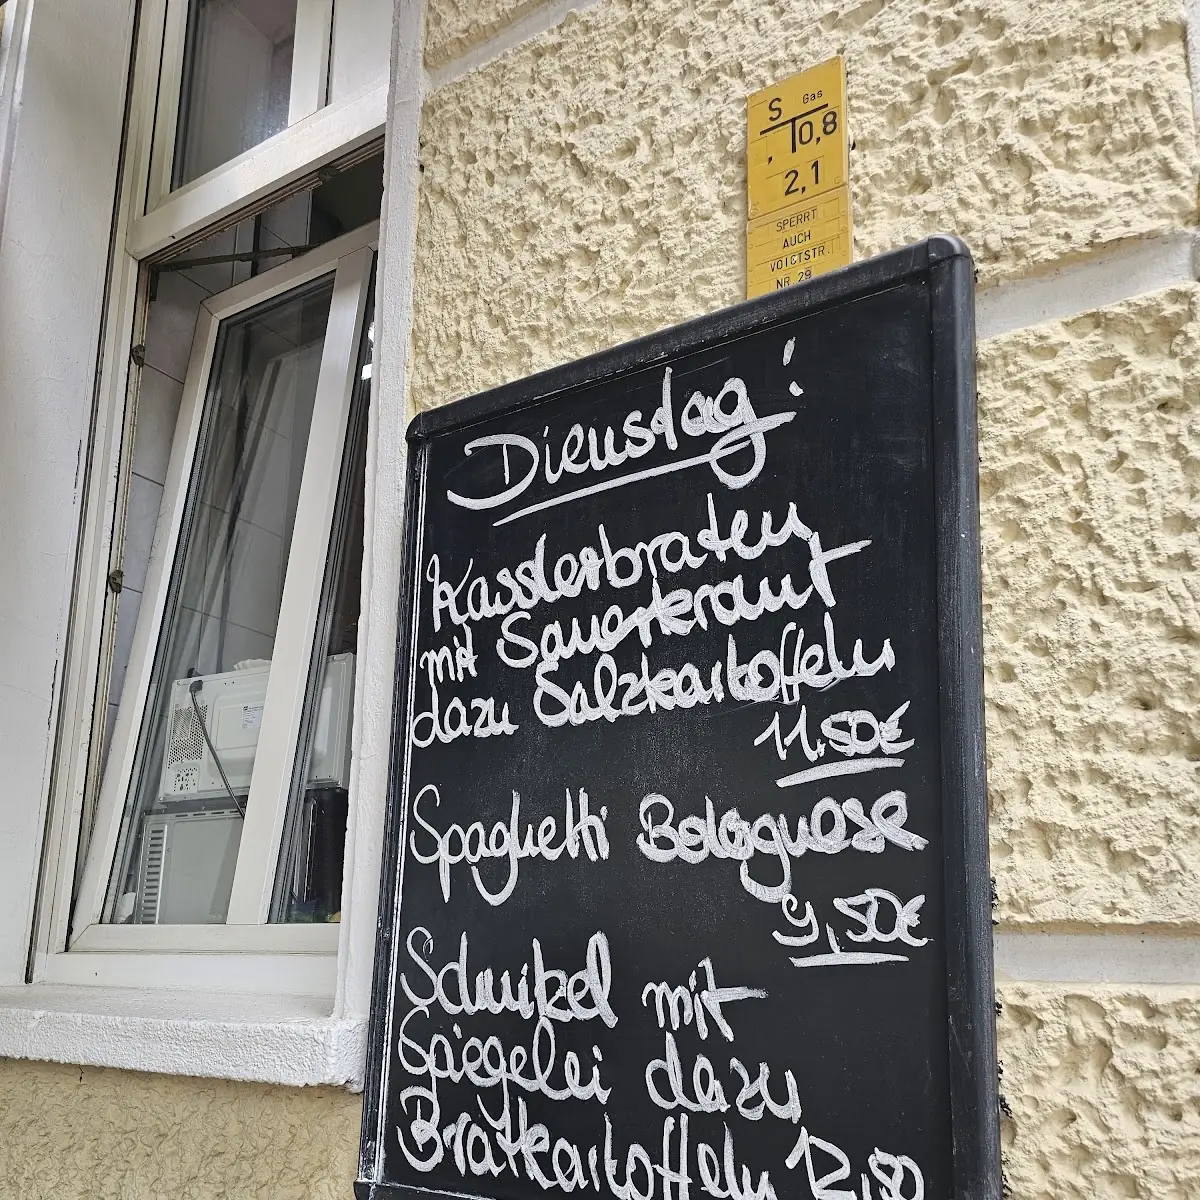 S Gas
, 10,8
2,1
SPERRT
AUCH
VOIGTSTR.
NR. 29
Dienstag!
Kasslerbraten
mit Sauerkraut
dazu Salzkartoffeln
11,50€
Spaghetti Bolognese
9,50€
Schnitzel mit
Spiegelei dazu
Bratkartoffeln 12,50